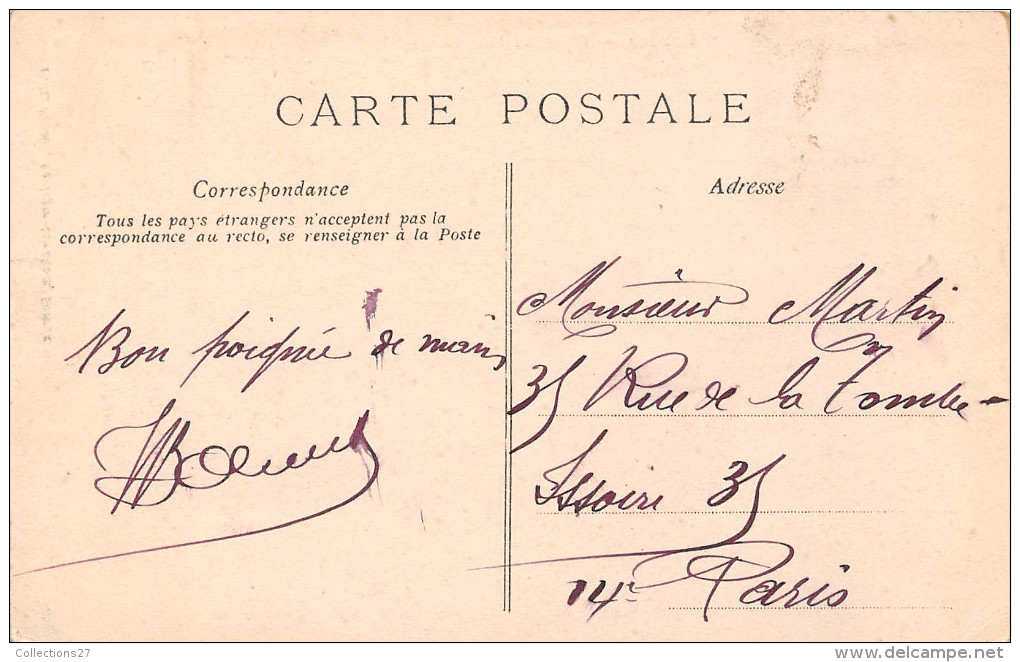 CARTE POSTALE
Correspondance
Tous les pays étrangers n'acceptent pas la
correspondance au recto, se renseigner à la Poste
Bon poignée de main
Adresse
Monsieur Martin
35 Rue de la Tombe-
Issoire 35
14e Paris
Collections27
www.delcampe.net